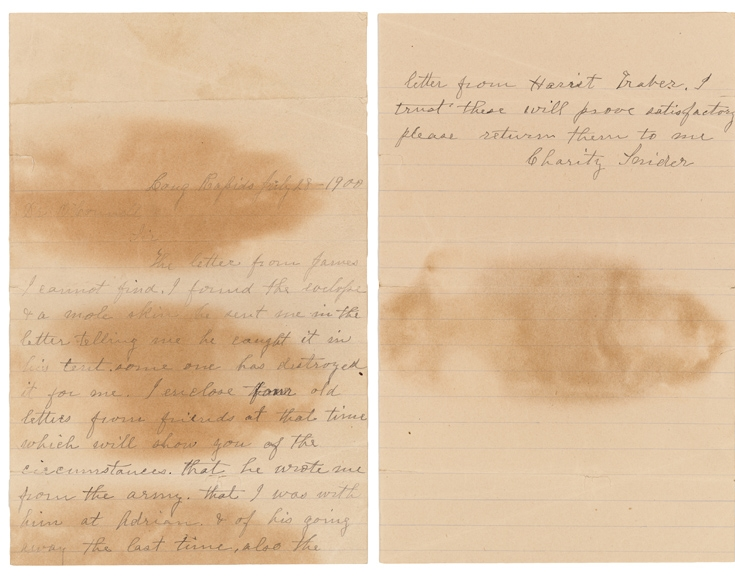 Long Rapids July 28-1900
Sir
The letter from James
I cannot find. I found the evelope
& a mole skin he sent me in the
letter telling me he caught it in
his tent. some one has destroyed
it for me. I enclose four old
letters from friends at that time
which will show you of the
circumstances. that he wrote me
from the army. that I was with
him at Adrian. & of his going
away the last time, also the
letter from Harriet Traber. I
trust these will prove satisfactory
please return them to me
Charity Snider